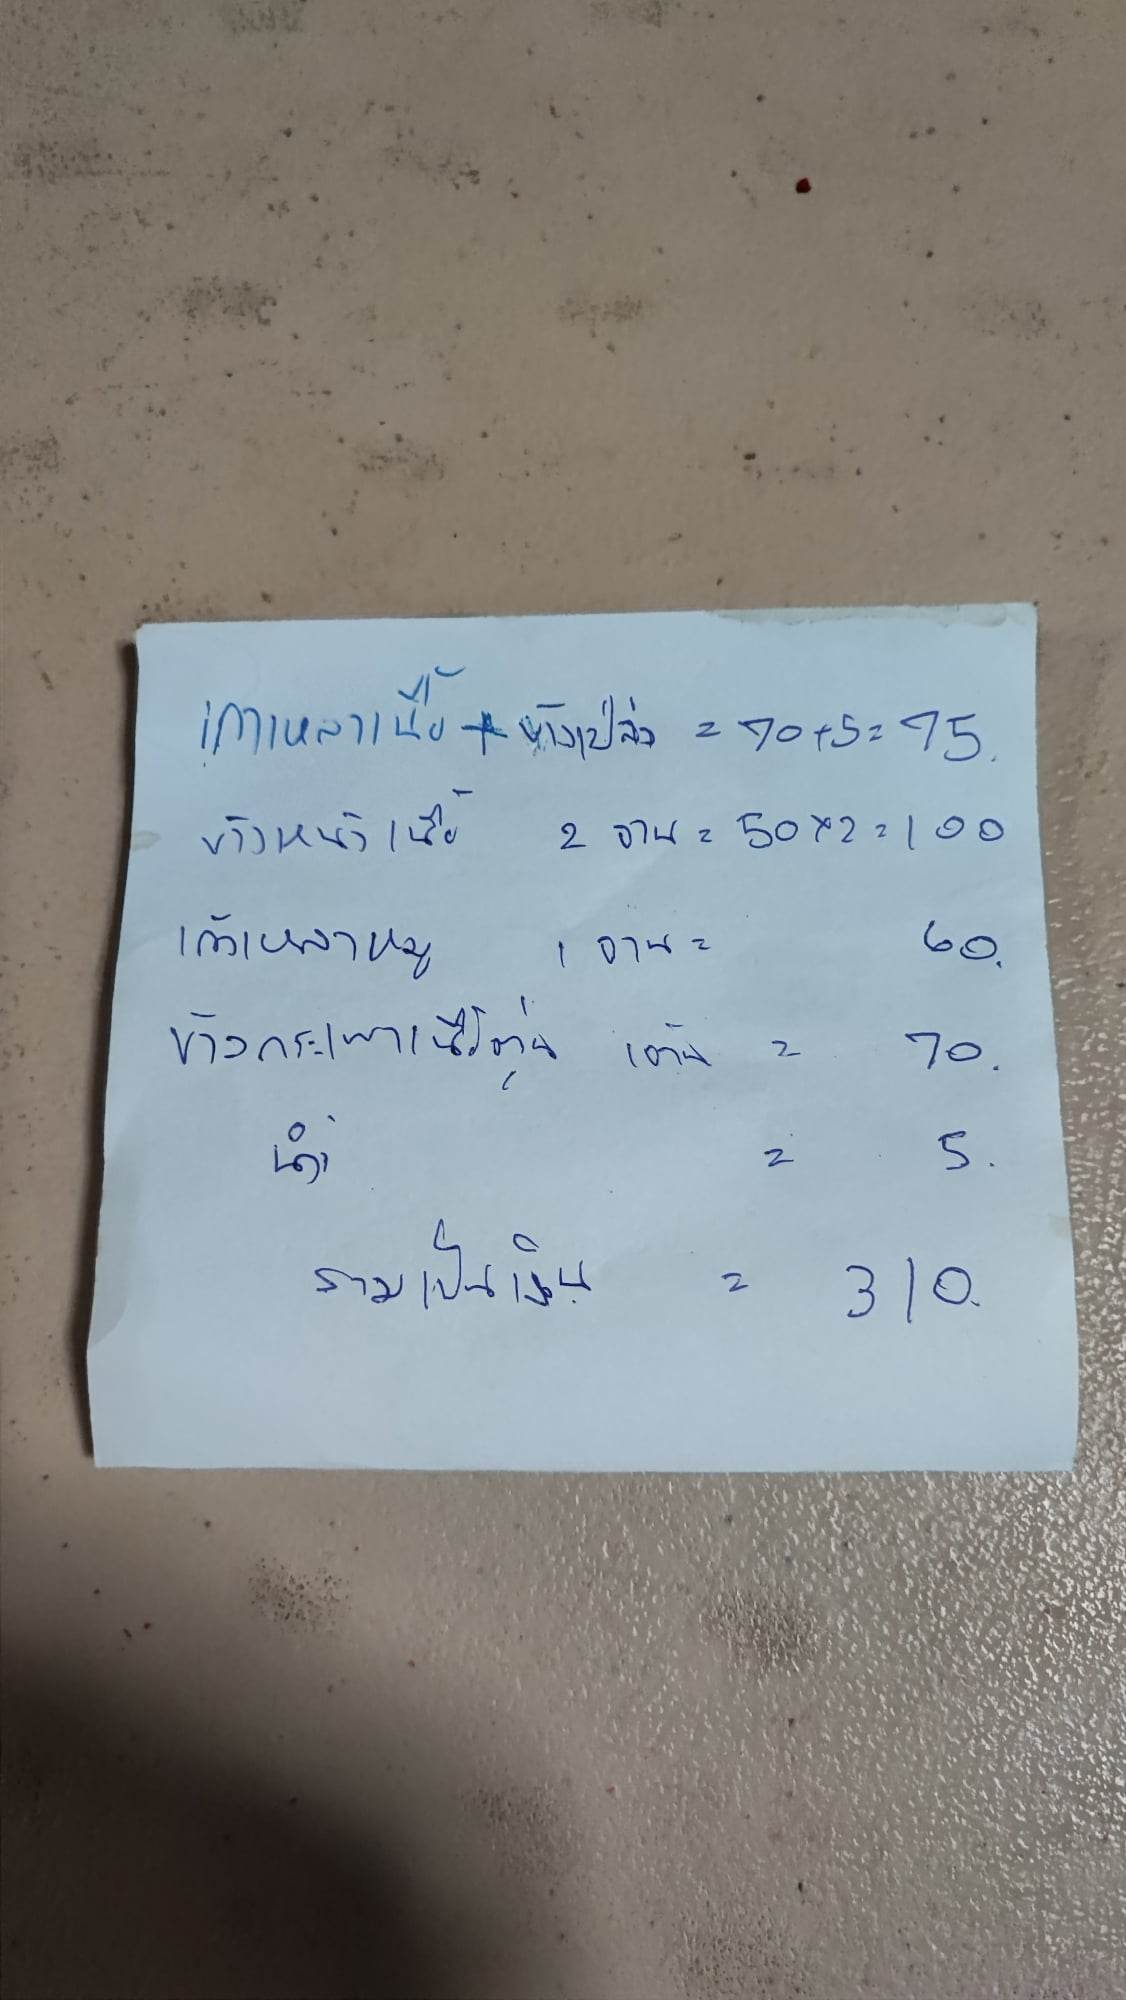 เกาเหลาเนื้อ + ข้าวเปล่า = 70+5 = 75.
ข้าวหน้าเนื้อ 2 จาน = 50×2 = 100
เกาเหลาหมู 1 จาน = 60.
ข้าวกระเพาเนื้อตุ๋น = 70.
น้ำ = 5.
รวมเป็นเงิน = 310.